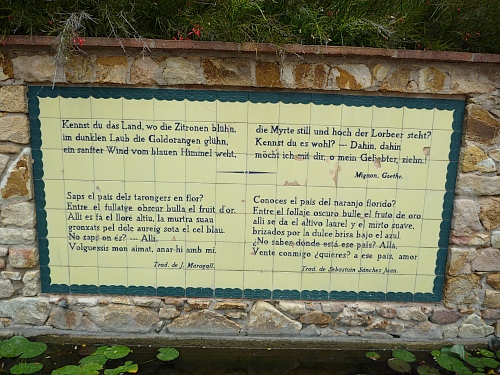 Kennst du das Land, wo die Zitronen blühn,
im dunklen Laub die Goldorangen glühn,
ein sanfter Wind vom blauen Himmel weht,
die Myrte still und hoch der Lorbeer steht?
Kennst du es wohl? --- Dahin, dahin
möcht ich mit dir, o mein Geliebter, ziehn.
Mignon, Goethe.
Saps el país dels tarongers en flor?
Entre el fullatge obscur bulla el fruit d'or.
Allí es fa el lloré altiu, la murtra suau
gronxats pel dolç aureig sota el cel blau.
No saps on éz? --- Allí
Volguessis mon aimat, anar-hi amb mi.
Trad. de J. Maragall.
Conoces el país del naranjo florido?
Entre el follaje oscuro bulle el fruto de oro
allí se da el altivo laurel y el mirto suave,
brizados por la dulce brisa bajo el azul.
¿No sabes dónde está ese país? Allá.
Vente conmigo ¿quieres? a ese país, amor
Trad. de Sebastián Sánchez Juan.